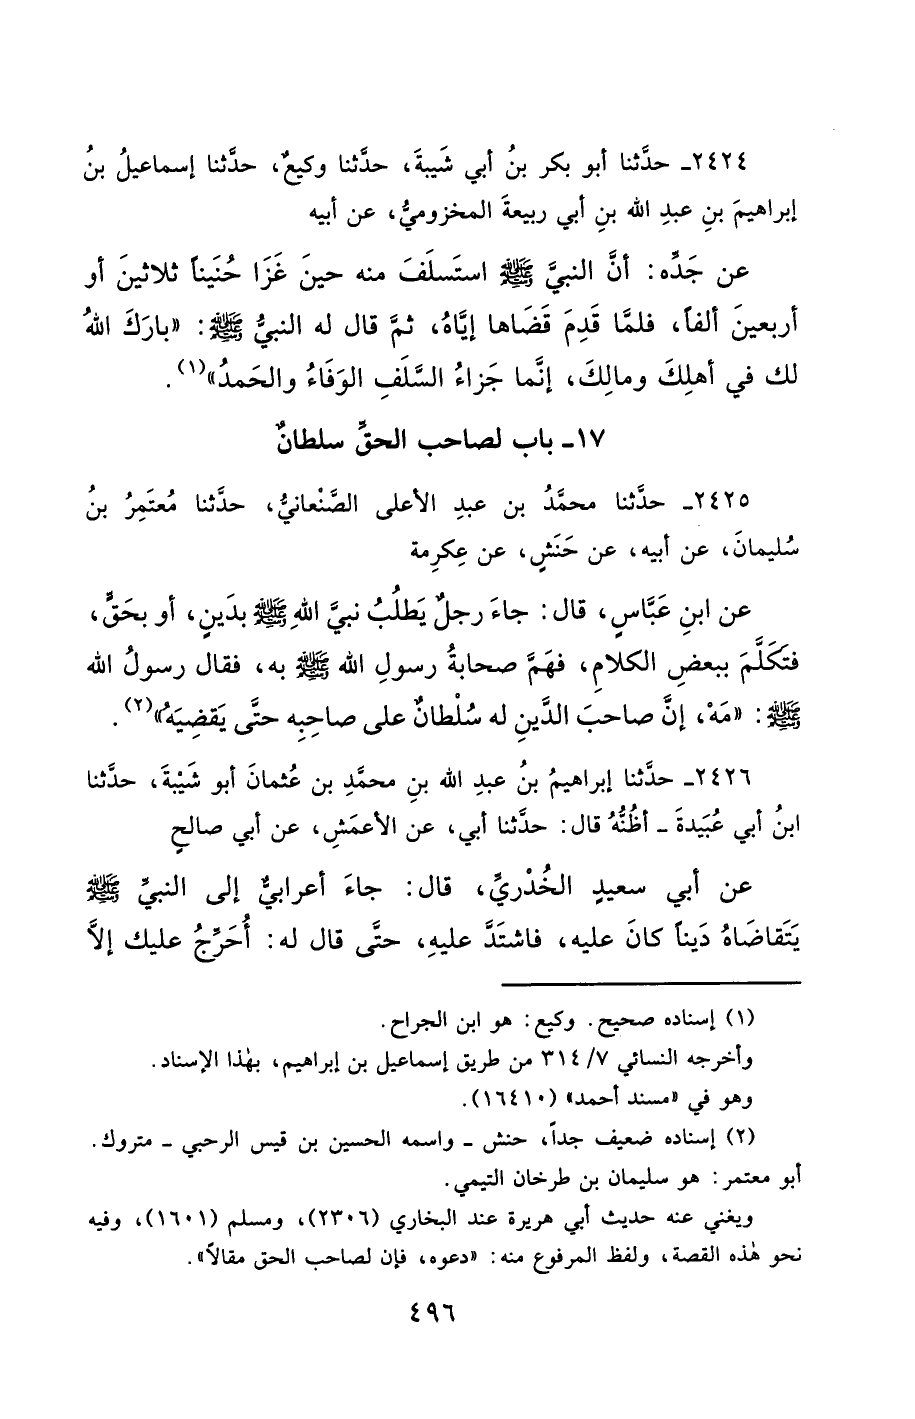 ٢٤٢٤ـ حدَّثنا أبو بكر بنُ أبي شَيبةَ، حدَّثنا وكيعٌ، حدَّثنا إسماعيلُ بنُ
إبراهيمَ بنِ عبدِ الله بنِ أبي ربيعةَ المخزوميُّ، عن أبيه
عن جَدِّه: أنَّ النبيَّ ﷺ استَسلَفَ منه حينَ غَزَا حُنَيناً ثلاثينَ أو
أربعينَ ألفاً، فلمَّا قَدِمَ قَضَاها إيَّاهُ، ثمَّ قال له النبيُّ ﷺ: «بارَكَ اللهُ
لك في أهلِكَ ومالِكَ، إنَّما جَزاءُ السَّلَفِ الوَفَاءُ والحَمدُ»(١).
١٧ـ باب لصاحب الحقِّ سلطانٌ
٢٤٢٥ـ حدَّثنا محمَّدُ بن عبدِ الأعلى الصَّنْعانيُّ، حدَّثنا مُعتَمِرُ بنُ
سُليمانَ، عن أبيه، عن حَنَشٍ، عن عِكرِمة
عن ابنِ عَبَّاسٍ، قال: جاءَ رجلٌ يَطلُبُ نبيَّ اللهِ ﷺ بدَينٍ، أو بحَقٍّ،
فتَكَلَّمَ ببعضِ الكلامِ، فهَمَّ صحابةُ رسولِ الله ﷺ به، فقال رسولُ الله
ﷺ: «مَهْ، إنَّ صاحبَ الدَّينِ له سُلْطانٌ على صاحِبِه حتَّى يَقضِيَهُ»(٢).
٢٤٢٦ـ حدَّثنا إبراهيمُ بنُ عبدِ الله بنِ محمَّدِ بن عُثمانَ أبو شَيْبَةَ، حدَّثنا
ابنُ أبي عُبَيدةَ ـ أظُنُّهُ قال: حدَّثنا أبي، عن الأعمَشِ، عن أبي صالحٍ
عن أبي سعيدٍ الخُدْريِّ، قال: جاءَ أعرابيٌّ إلى النبيِّ ﷺ
يَتَقاضَاهُ دَيناً كانَ عليه، فاشتَدَّ عليهِ، حتَّى قال له: أُحَرِّجُ عليك إلاَّ
(١) إسناده صحيح. وكيع: هو ابن الجراح.
وأخرجه النسائي ٣١٤/٧ من طريق إسماعيل بن إبراهيم، بهٰذا الإسناد.
وهو في «مسند أحمد» (١٦٤١٠).
(٢) إسناده ضعيف جداً، حنش ـ واسمه الحسين بن قيس الرحبي ـ متروك.
أبو معتمر: هو سليمان بن طرخان التيمي.
ويغني عنه حديث أبي هريرة عند البخاري (٢٣٠٦)، ومسلم (١٦٠١)، وفيه
نحو هٰذه القصة، ولفظ المرفوع منه: «دعوه، فإن لصاحب الحق مقالاً».
٤٩٦